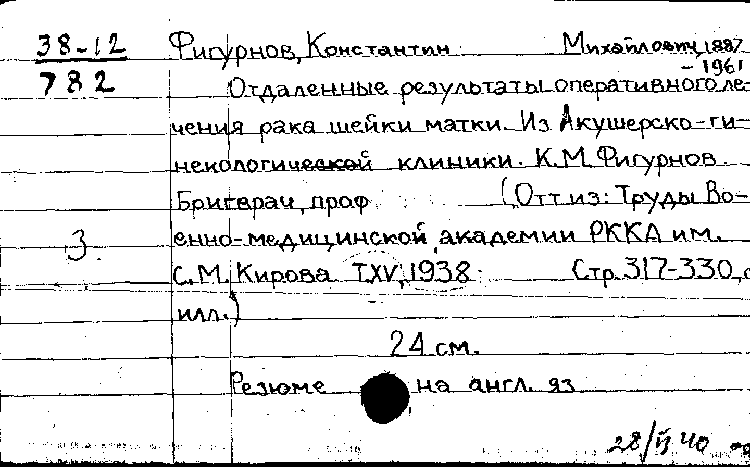 38-12
782
Фигурнов, Константин Михайлович, 1887
- 1961
Отдаленные результаты оперативного ле-
чения рака шейки матки. Из Акушерско-ги-
некологической клиники. К.М. Фигурнов.
Бригврач, проф. (Отт из: Труды Во-
3.
енно-медицинской академии РККА им.
С.М. Кирова. Т.XV, 1938. Стр. 317-330, с
илл.)
24 см.
Резюме на англ. яз
28/VI 40